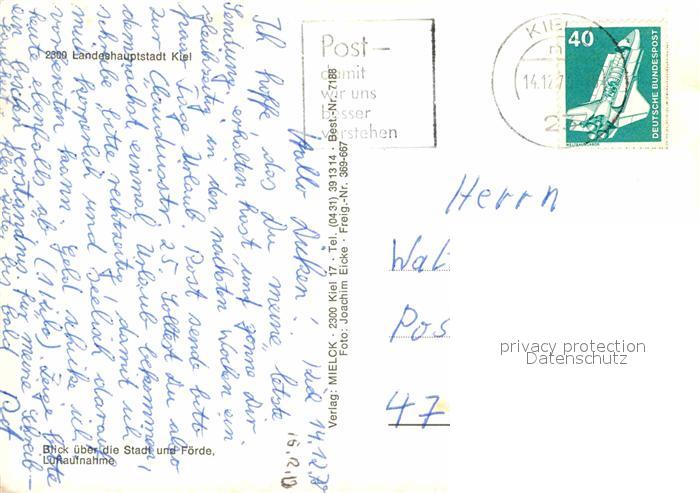 2300 Landeshauptstadt Kiel
Kiel 14.12.78
Hallo Dicken!
Ich hoffe, das Du meine letzte
Sendung erhalten hast, und gönne Dir
gleichzeitig in den nächsten Wochen ein
paar Tage Urlaub. Post sende bitte
zur Claudiusstr. 25. Solltest Du also
demnächst einmal Urlaub bekommen,
schreibe bitte rechtzeitig, damit ich
mich körperlich und seelisch darauf
vorbereiten kann. Geld schicke ich
heute ebenfalls ab Zeige bitte
ein bischen Verständnis für meine Schreib-
Alles Gute, bis bald
16.12.
Blick über die Stadt und Förde,
Luftaufnahme
Verlag: MIELCK · 2300 Kiel 17 · Tel. (0431) 391314 · Best.-Nr. 7188
Foto: Joachim Eicke · Freig.-Nr. 369-667
Post–
damit
wir uns
besser
verstehen
KIEL
14.12.78
23
40
DEUTSCHE BUNDESPOST
WELTRAUMLABOR
Herrn
Wal
Pos
47
privacy protection
Datenschutz